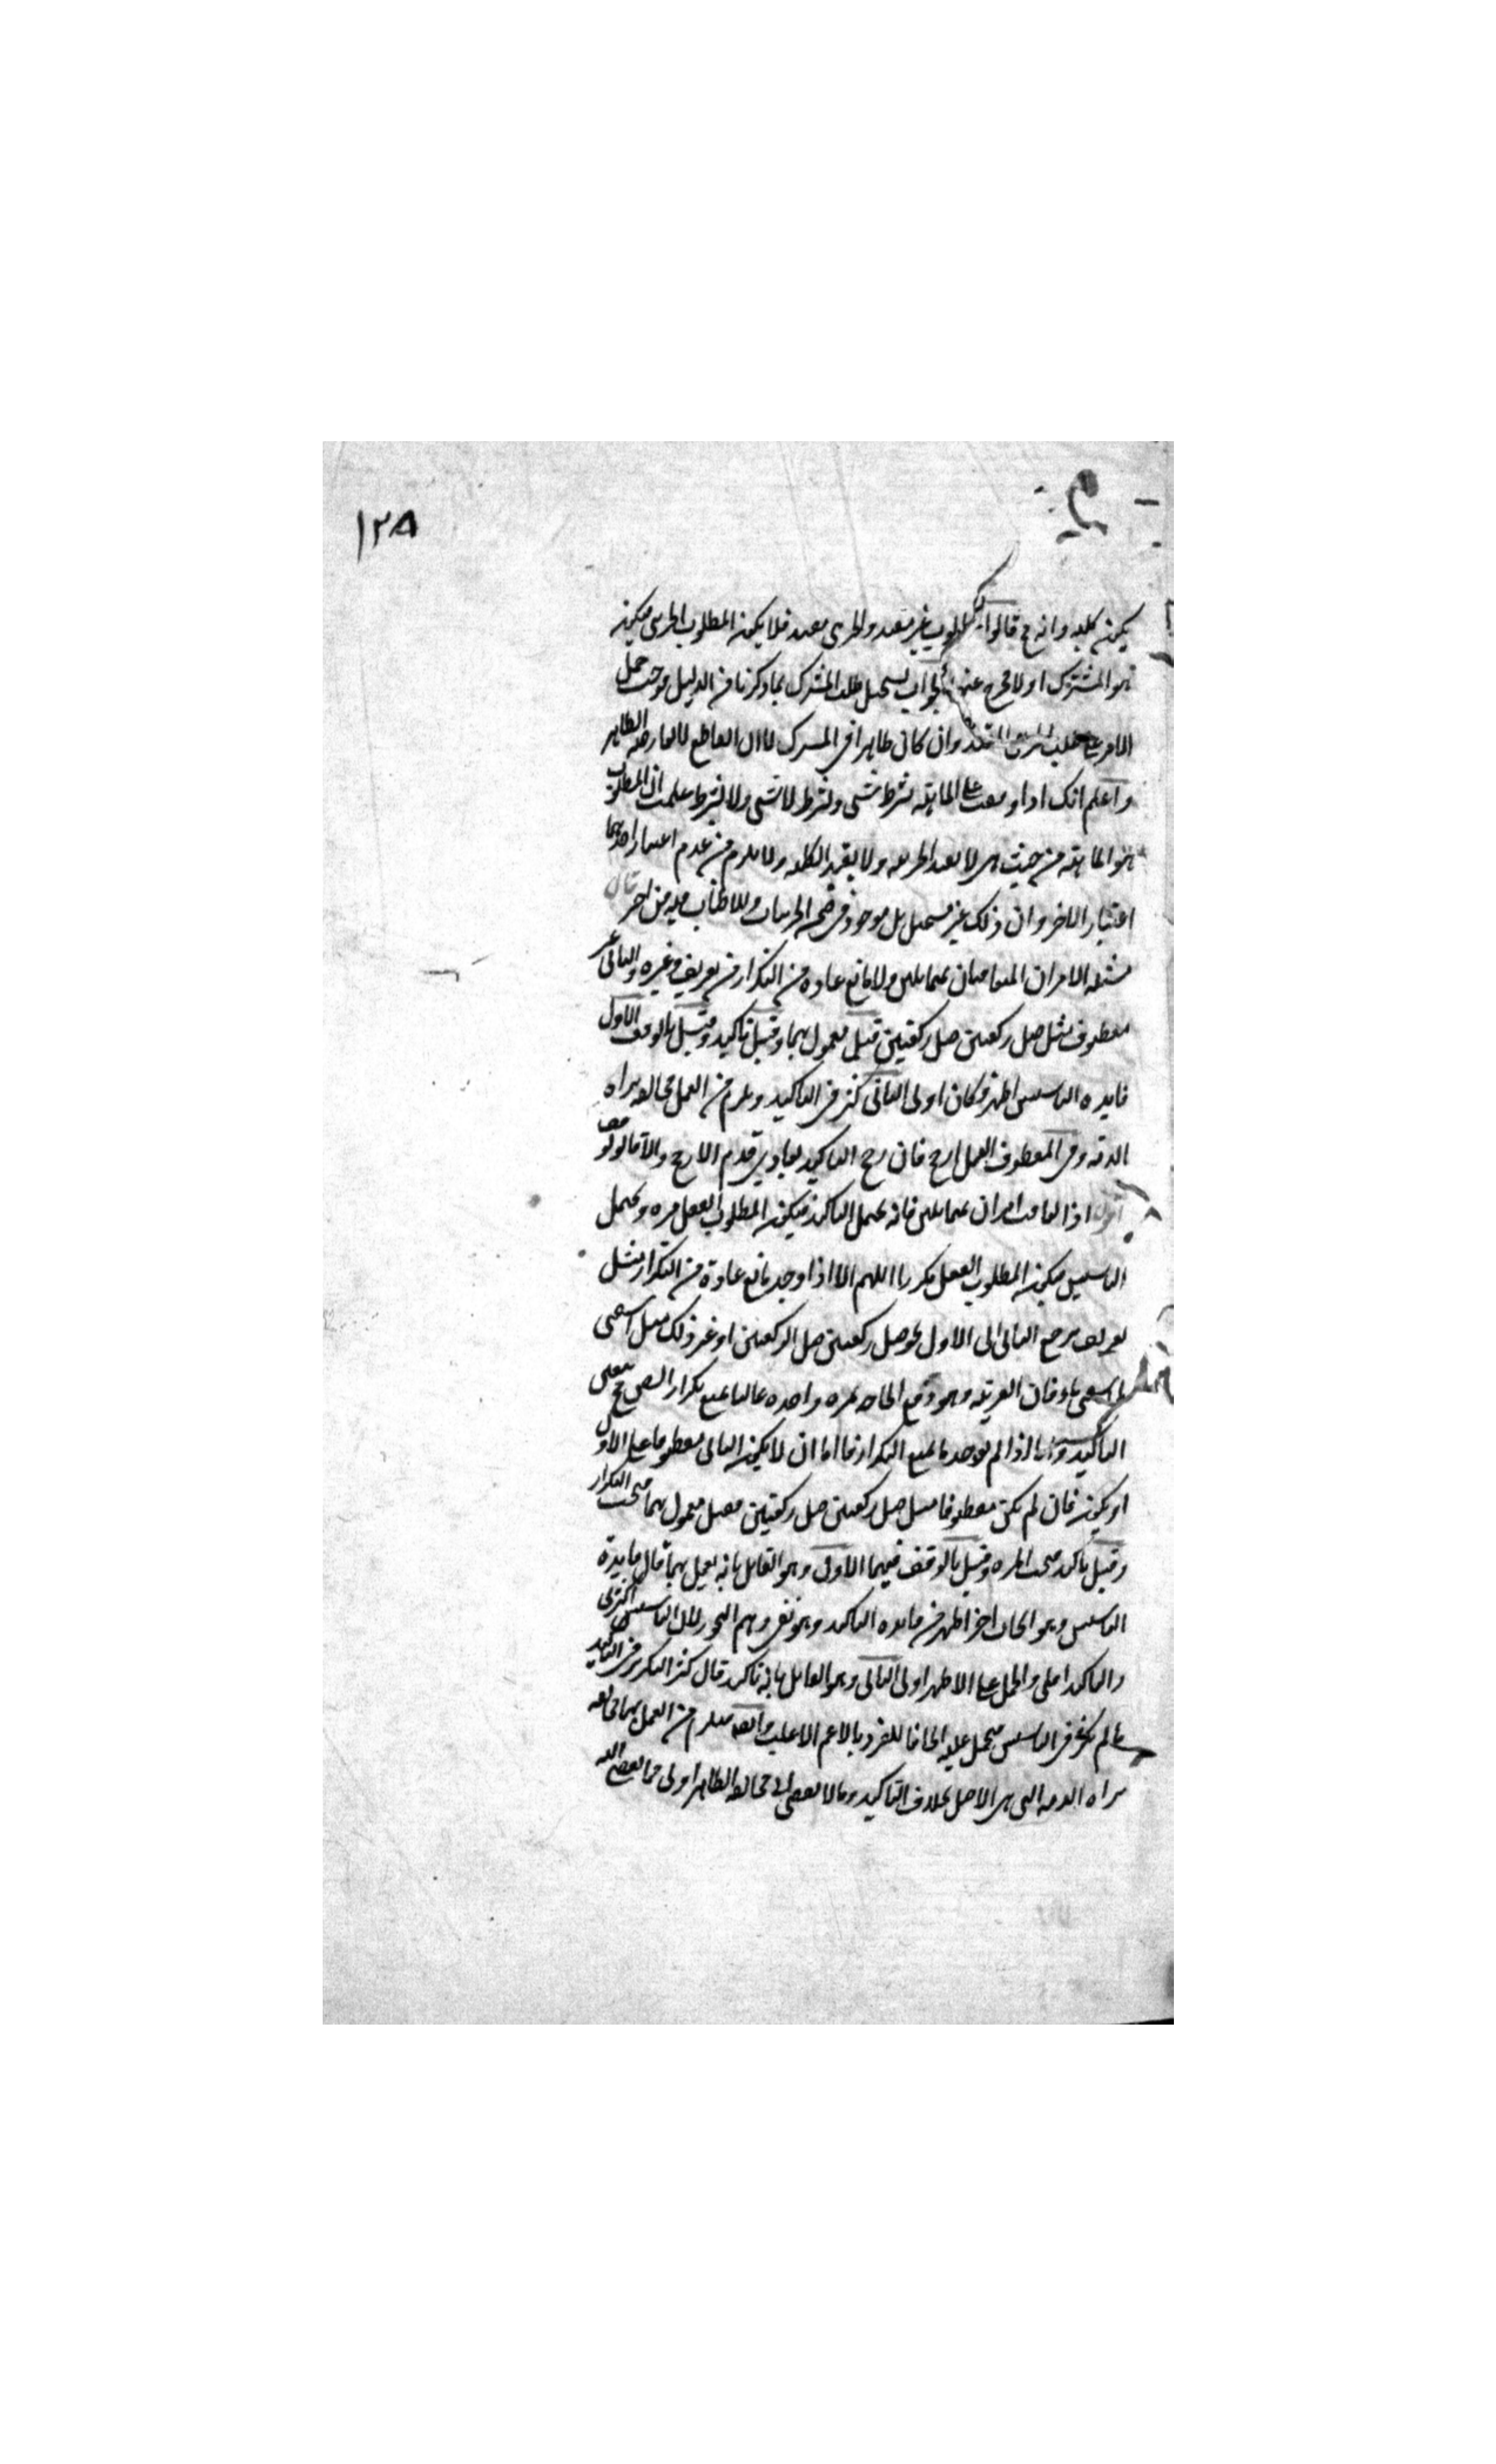 ١٢٨
يكون كليه وانه ح قالوا المطلوب غير مقيد والجزئى مقيد فلا يكون المطلوب الجزئى فيكون
هو المشترك اولا مخرج عنهما الجواب يستحيل طلب المشترك بما ذكرنا من الدليل فوجب حمل
الامر على طلب وان كان ظاهرا فى المشترك لان القاطع لا يعارضه الظاهر
واعلم انك اذا وقفت على الماهية بشرط شى وبشرط لا شى ولا بشرط علمت ان المطلوب
هو الماهية من حيث هى لا بقيد الجزئيه ولا بقيد الكليه ولا يلزم من عدم اعتبار احدهما
اعتبار الاخر وان ذلك غير مستحيل بل موجود فى ضمن الجزييات وللاطناب فيه من اخر قال
مسئله الامران المتعاقبان بمتماثلين ولا مانع عادة من التكرار من تعريف وغيره والثانى غير
معطوف مثل صل ركعتين صل ركعتين قيل معمول بهما وقيل تاكيد وقيل بالوقف الاول
فايده التاسيس اظهر فكان اولى الثانى كثر فى التاكيد ويلزم من العمل مخالفه براه
الذمه وفى المعطوف العمل ارجح فان رجح التاكيد بعادى قدم الارجح والا فالوقف
اقول اذا تعاقب امران بمتماثلين فانه يحتمل التاكيد فيكون المطلوب الفعل مره ويحتمل
التاسيس فيكون المطلوب الفعل مكررا اللهم الا اذا وجد مانع عادة من التكرار مثل
تعريف يرجع الثانى الى الاول نحو صل ركعتين صل الركعتين او غير ذلك مثل اسقنى
ما اسقنى ماء فان القرينه وهو دفع الحاجه بمره واحده غالبا يمنع تكرار السقى فح يتعين
التاكيد واما اذا لم يوجد ما يمنع التكرار فاما ان لا يكون الثانى معطوفا على الاول
او يكون فان لم يكن معطوفا مثل صل ركعتين صل ركعتين فقيل معمول بهما فيجب التكرار
وقيل تاكيد فيجب المره وقيل بالوقف فيهما الاول وهو القايل بانه يعمل بهما قال فايدة
التاسيس وهو ايجاب اخر اظهر من فايده التاكيد وهو نفى وهم التجوز لان التاسيس اكثرى
والتاكيد اقلى والحمل على الاظهر اولى الثانى وهو القايل بانه تاكيد قال كثر التكرير فى التاكيد
ما لم يكثر فى التاسيس فيحمل عليه الحاقا للفرد بالاعم الاغلب وايضا فيلزم من العمل بهما مخالفه
براه الذمه التى هى الاصل بخلاف التاكيد وما لا يفضى الى مخالفه الظاهر اولى مما يفضى اليه